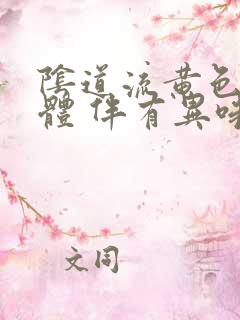 陰道流黄色
體伴有異味
文同